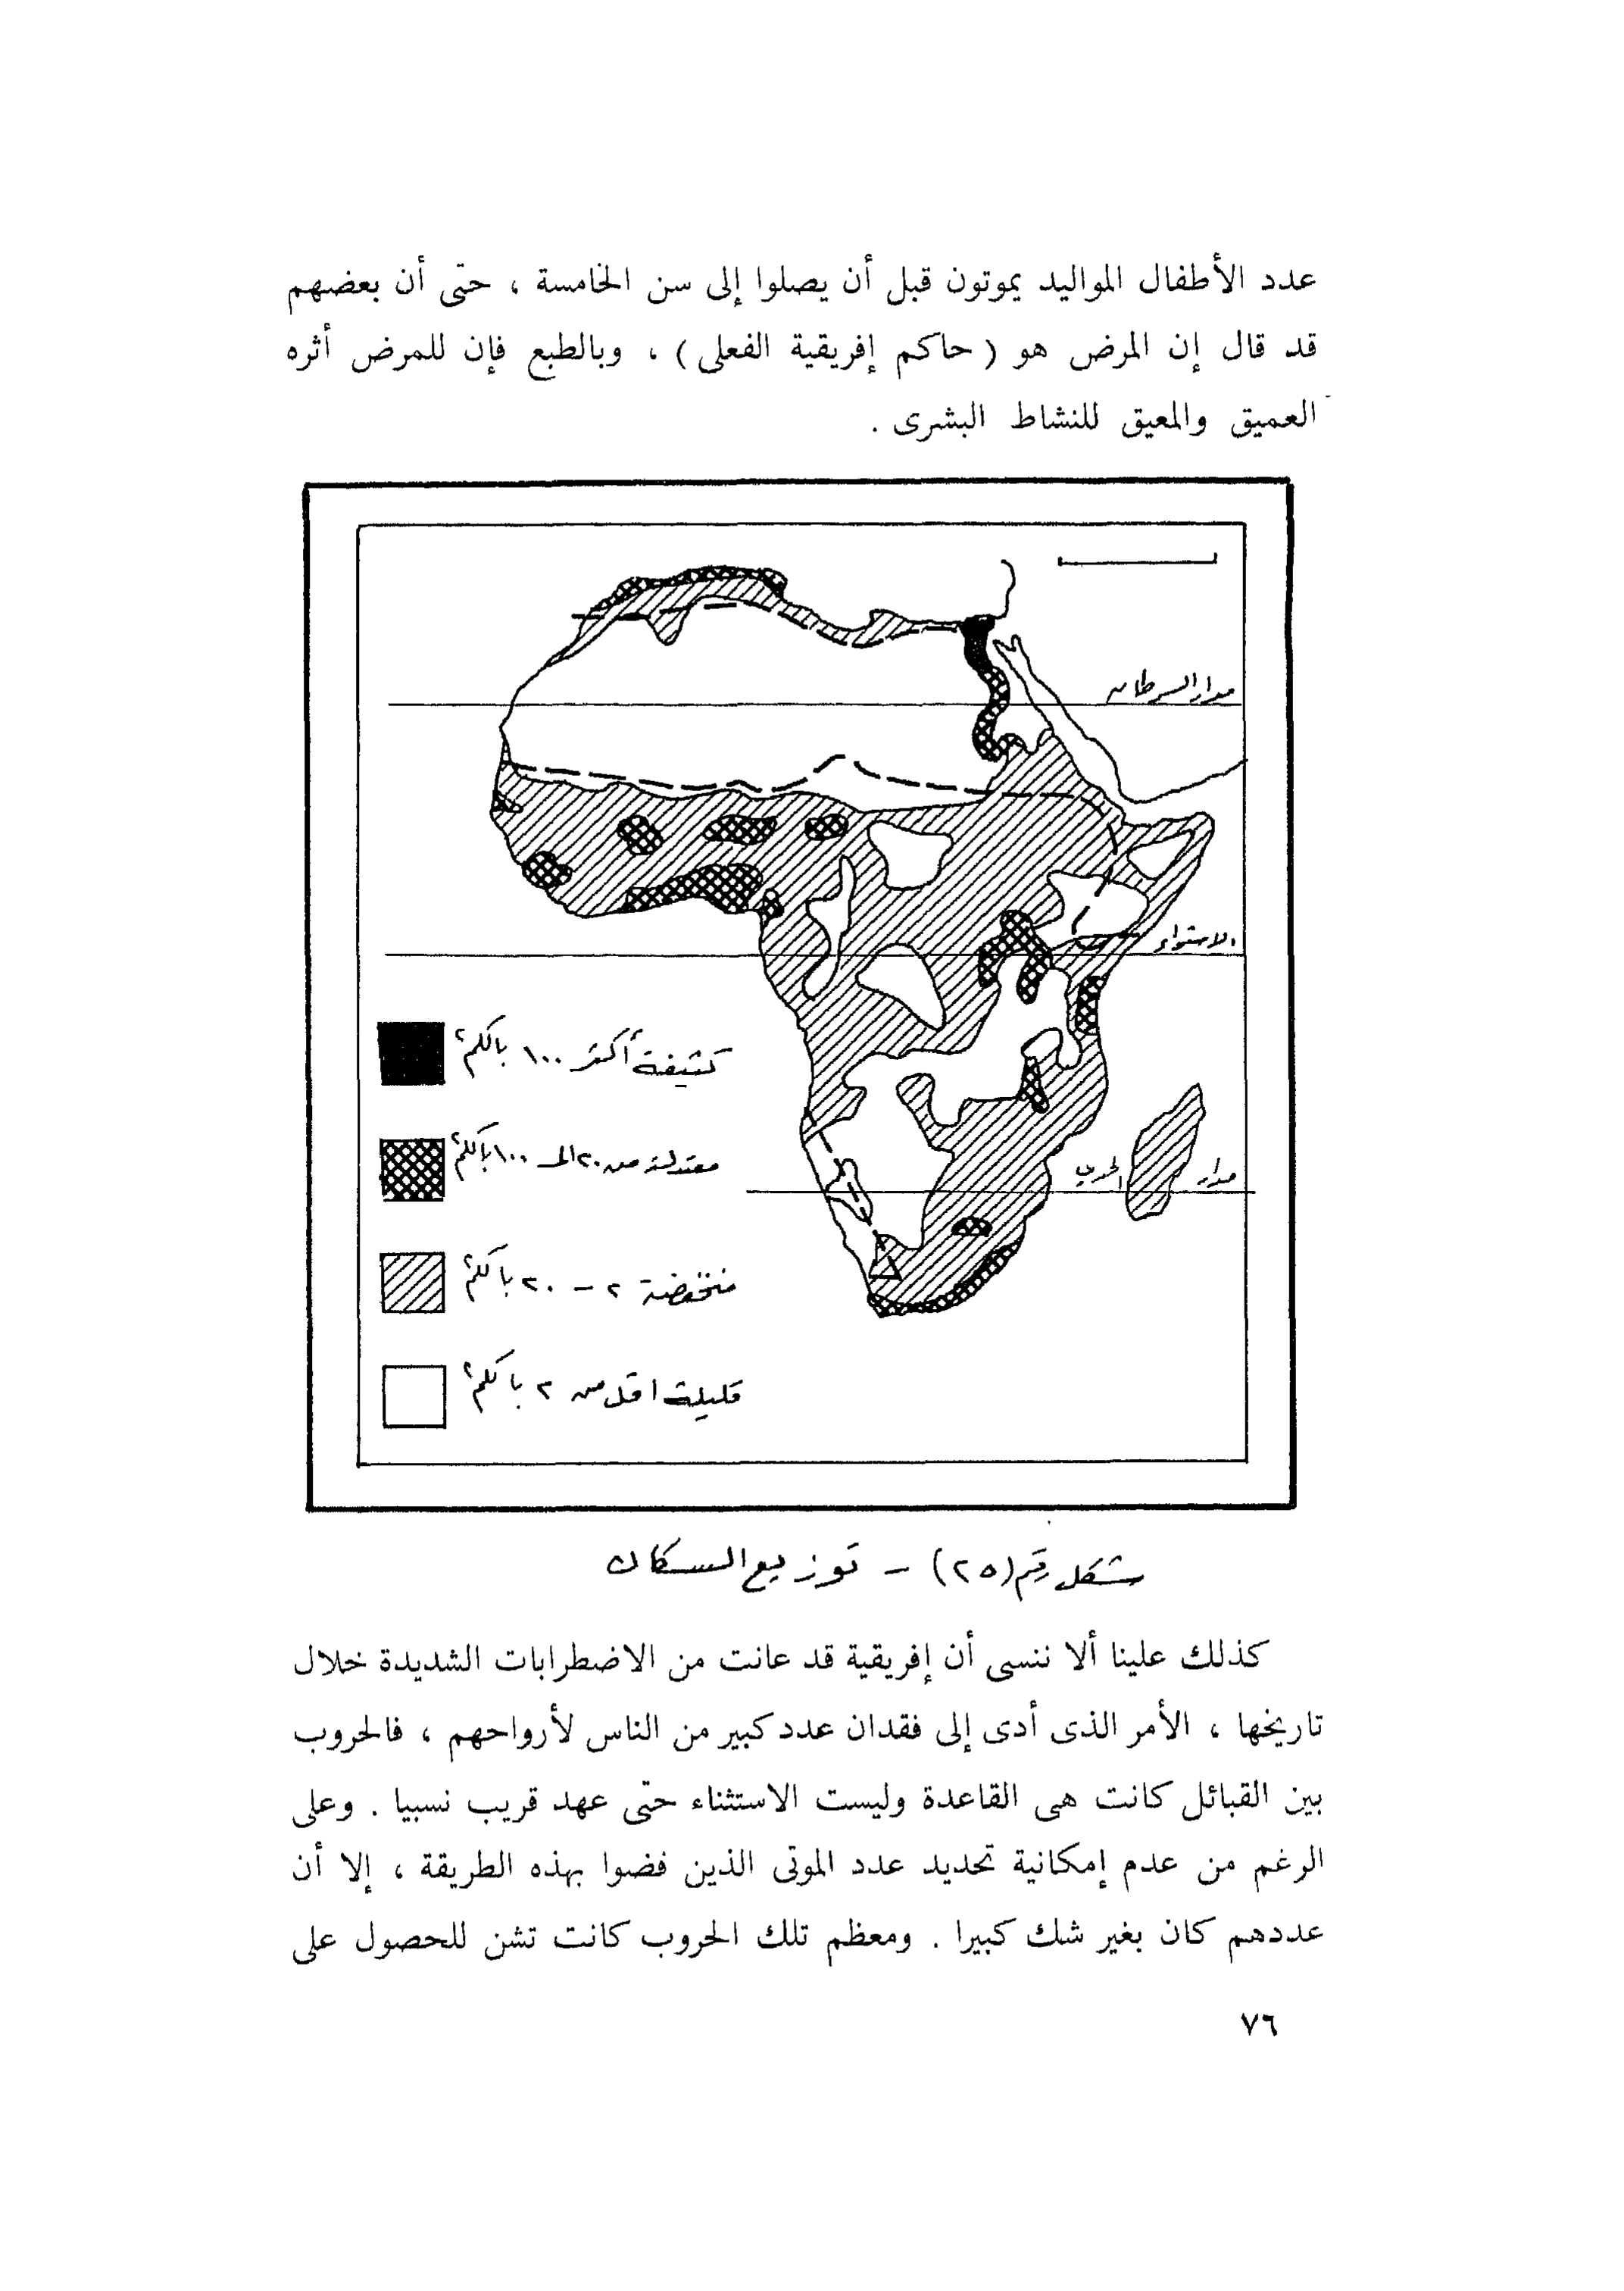 عدد الأطفال المواليد يموتون قبل أن يصلوا إلى سن الخامسة ، حتى أن بعضهم
قد قال إن المرض هو ( حاكم إفريقية الفعلى ) ، وبالطبع فإن للمرض أثره
العميق والمعيق للنشاط البشرى .
مدار السرطان
الاستواء
مدار الجدي
كثيفة أكثر ١٠٠ بالكم٢
معتدلة من ٢٠ الى ١٠٠ بالكم٢
منخفضة ٢ – ٢٠ بالكم٢
قليلة اقل من ٢ بالكم٢
شكل رقم (٢٥) – توزيع السكان
كذلك علينا ألا ننسى أن إفريقية قد عانت من الاضطرابات الشديدة خلال
تاريخها ، الأمر الذى أدى إلى فقدان عدد كبير من الناس لأرواحهم ، فالحروب
بين القبائل كانت هى القاعدة وليست الاستثناء حتى عهد قريب نسبيا . وعلى
الرغم من عدم إمكانية تحديد عدد الموتى الذين قضوا بهذه الطريقة ، إلا أن
عددهم كان بغير شك كبيرا . ومعظم تلك الحروب كانت تشن للحصول على
٧٦